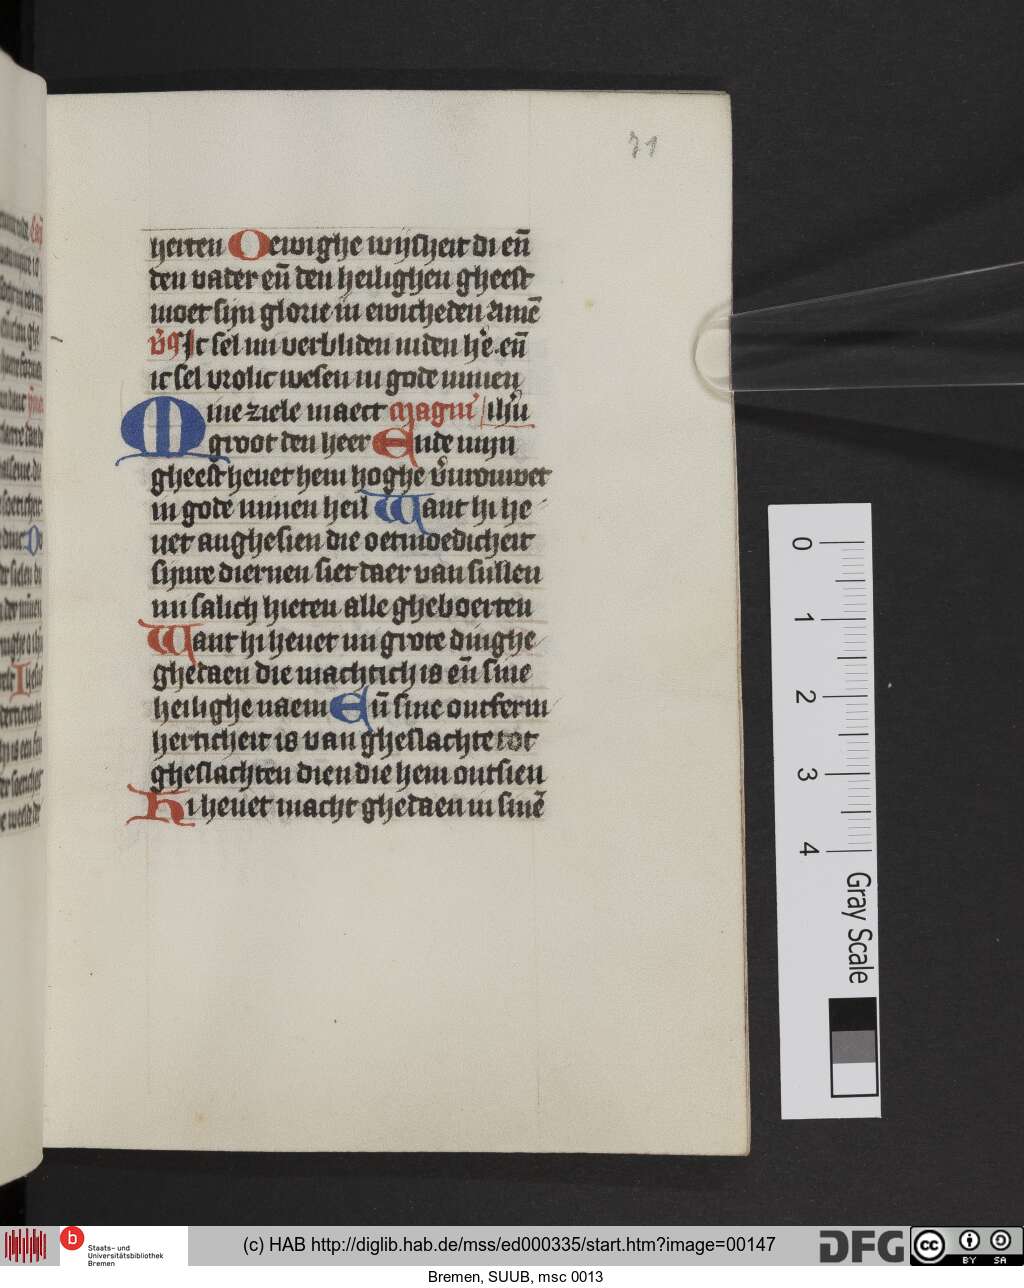 71
herten O ewighe wijsheit di eñ
den vader eñ den heilighen gheest
moet sijn glorie in ewicheden amē
v̓s Ic sel mi verbliden inden he̓. eñ
ic sel vrolic wesen in gode minen
Mine ziele maect magni̓ ihu̓
groot den heer Ende mijn
gheest heuet hem hoghe v̓urouwet
in gode minen heil Want hi he
uet anghesien die oetmoedicheit
sijnre diernen siet daer van sullen
mi salich hieten alle gheboerten
Want hi heuet mi grote dinghe
ghedaen die machtich is eñ sine
heilighe naem Eñ sine ontferm
herticheit is van gheslachte tot
gheslachten dien die hem ontsien
Hi heuet macht ghedaen in sinē
0
1
2
3
4
Gray Scale
b
Staats- und
Universitätsbibliothek
Bremen
(c) HAB http://diglib.hab.de/mss/ed000335/start.htm?image=00147
DFG
cc
BY SA
Bremen, SUUB, msc 0013